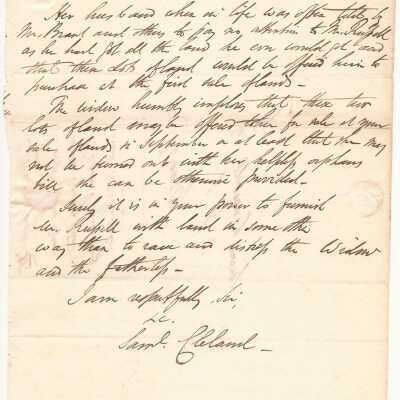 Her husband when in life was often told by
Mr. Brant and others to pay no attention to Mr. Russell
as he had got all the land he ever could get and
that these lots of land would be offered him to
purchase at the first sale of land -
The widow humbly implores that these two
lots of land may be offered for sale at your
sale of lands in September or at least that she may
not be turned out with her helpless orphans
till she can be otherwise provided -
Surely it is in your power to furnish
Mr. Russell with land in some other
way than to and distress the Widow
and the fatherless -
I am respectfully Sir,
&c.
Saml. Cleland -